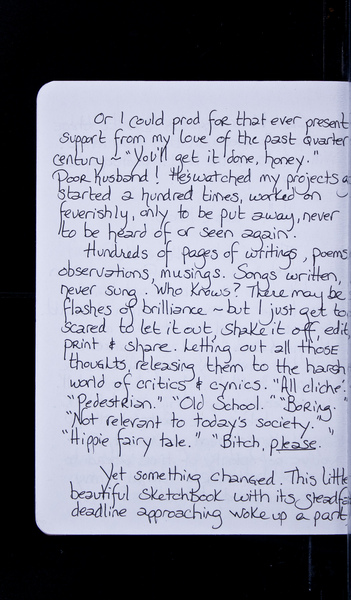 Or I could prod for that ever present
support from my love of the past quarter
century ~ "You'll get it done, honey."
Poor husband! He's watched my projects
started a hundred times, worked on
feverishly, only to be put away, never
to be heard of or seen again.
Hundreds of pages of writings, poems
observations, musings. Songs written,
never sung. Who knows? There may be
flashes of brilliance ~ but I just get to
scared to let it out, shake it off, edit
print & share. Letting out all those
thoughts, releasing them to the harsh
world of critics & cynics. "All cliche."
"Pedestrian." "Old School." "Boring."
"Not relevant to today's society."
"Hippie fairy tale." "Bitch, please.
Yet something changed. This little
beautiful sketchbook with its
deadline approaching woke up a part